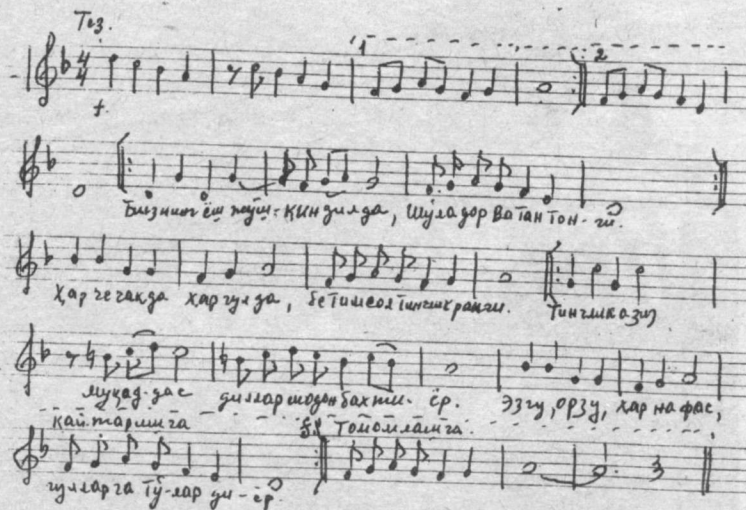 Тез.
4 4
1
2
f.
Бизнинг ёш жўш-қин дилда, шуладор Ватан тон-ги.
Ҳар чечакда ҳар гулда, бетимсол тинглик ранги. Тинглик азиз
муқад-дас диллар шодон бахти-ёр. Эзгу, орзу, ҳар нафас,
қайтаришга Томомлашга.
гулларга тў-лар ди-ёр.